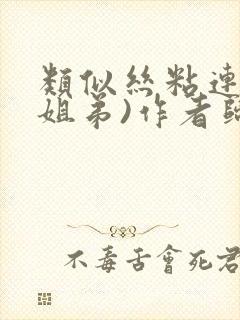 類似絲粘連
姐弟)作者臨
不毒舌會死君